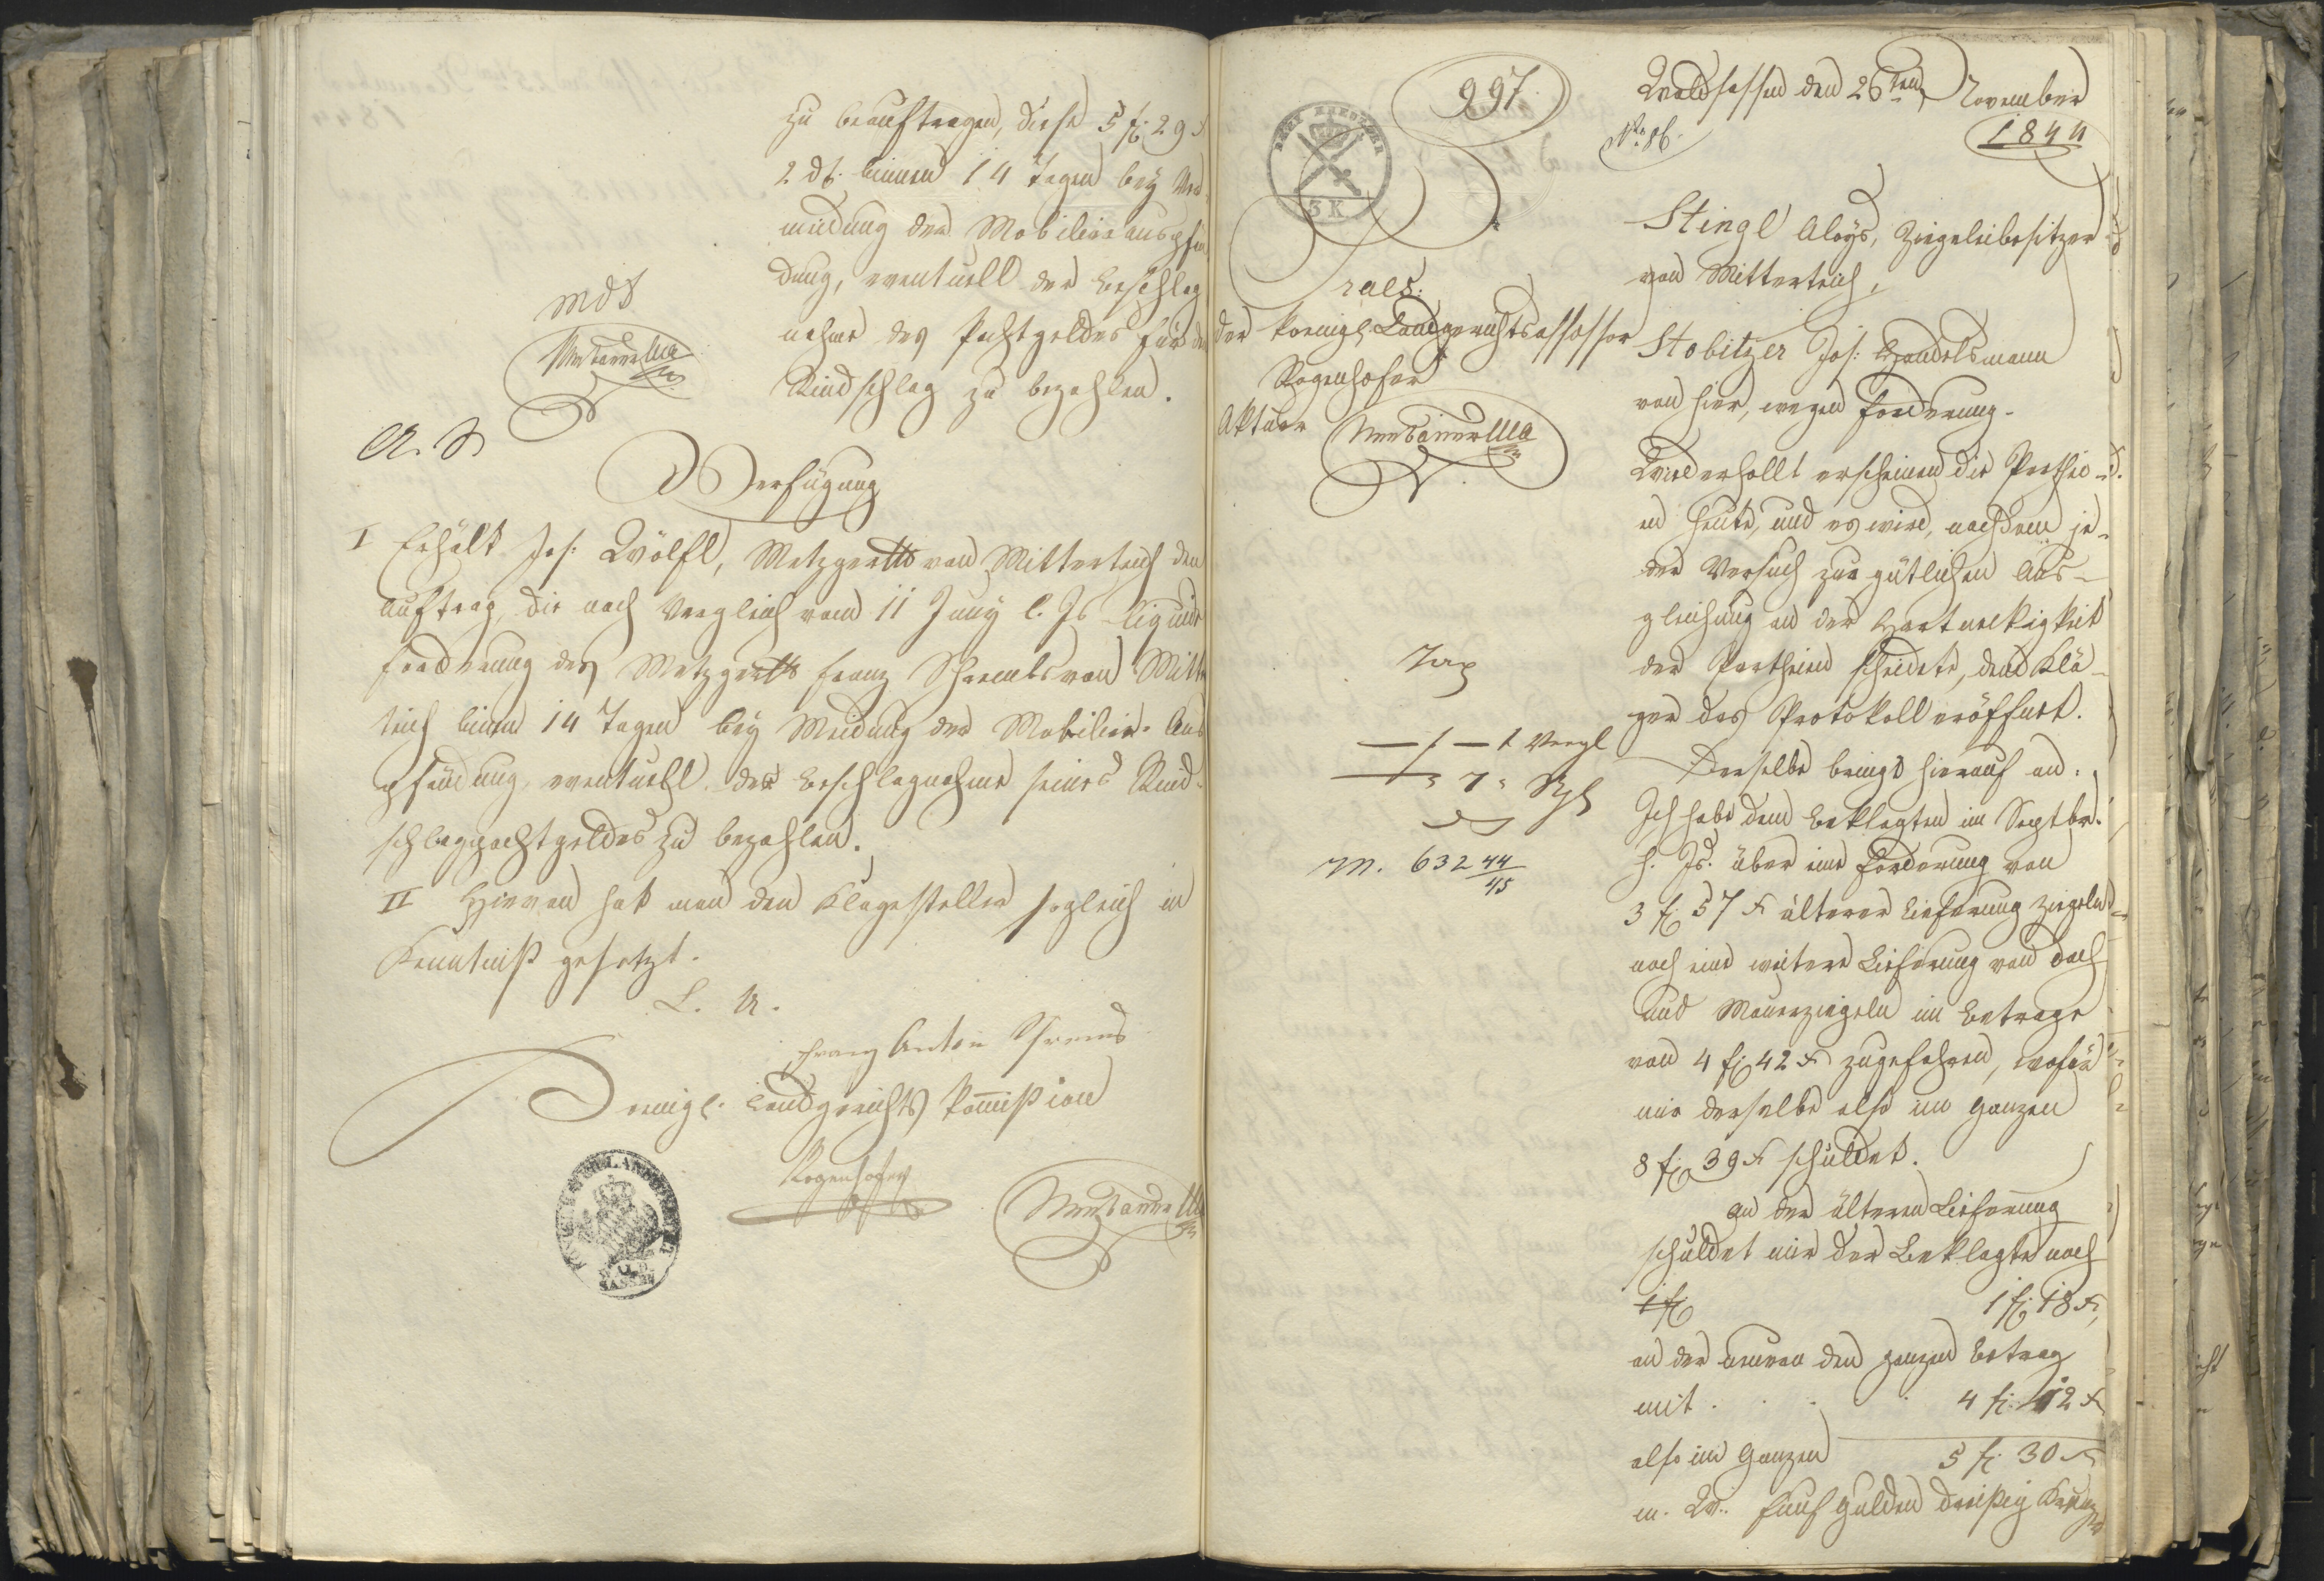 zu beauftragen, diese 5 f 29 x
2 df. binnen 14 Tagen bey Ver-
meidung der Mobiliarauspfän-
dung, eventuell der Beschlag
nahme des Pachtgeldes für den
Rindschlag zu bezahlen.
A. S.
Verfügung
I Erhält Jos: Wölfl, Metzger von Mitterteich den
Auftrag, die nach Vergleich vom 11 Juny l. Js liquide
Forderung des Metzgers Franz Schrembs von Mitter
teich binnen 14 Tagen bey Meidung der Mobiliar-Aus
pfändung, eventuell der Beschlagnahme seines Rind-
schlagpachtgeldes zu bezahlen.
II Hievon hat man den Klagesteller sogleich in
Kenntniß gesetzt.
L. U.
Franz Anton Schrems
Koenigl. Landgerichts Kommission
Rogenhofer
997.
DREI KREUZER
3 K
Waldsassen den 26ten November
No. 86.
1844
Praes:
der koenigl. Landgerichtsassessor
Rogenhofer
Aktuar
Stingl Aloys, Ziegeleibesitzer
von Mitterteich,
Stobitzer Jos: Handelsmann
von hier, wegen Forderung.
Wiederhollt erscheinen die Parthei-
en heute, und es wird, nachdem je-
der Versuch zur gütlichen Aus-
gleichung an der Hartnekigkeit
der Partheien scheiterte, dem Klä-
ger das Protokoll eröffnet.
Derselbe bringt hierauf an:
Ich habe dem Beklagten im Septbr.
h. Js. über eine Forderung von
3 f 57 x älterer Lieferung Ziegeln
noch eine weitere Lieferung von Dach
und Mauerziegeln im Betrage
von 4 f 42 x zugefahren, wofür
mir derselbe also im Ganzen
8 f 39 x schuldet.
An der älteren Lieferung
schuldet mir der Beklagte noch
1 f 1 f 18 x,
an der neuren den ganzen Betrag
mit . . . 4 f 12 x
also im Ganzen 5 f 30 x
m. W. fünf Gulden dreißig Kreuzer
Tax
7
M. 632 44/45